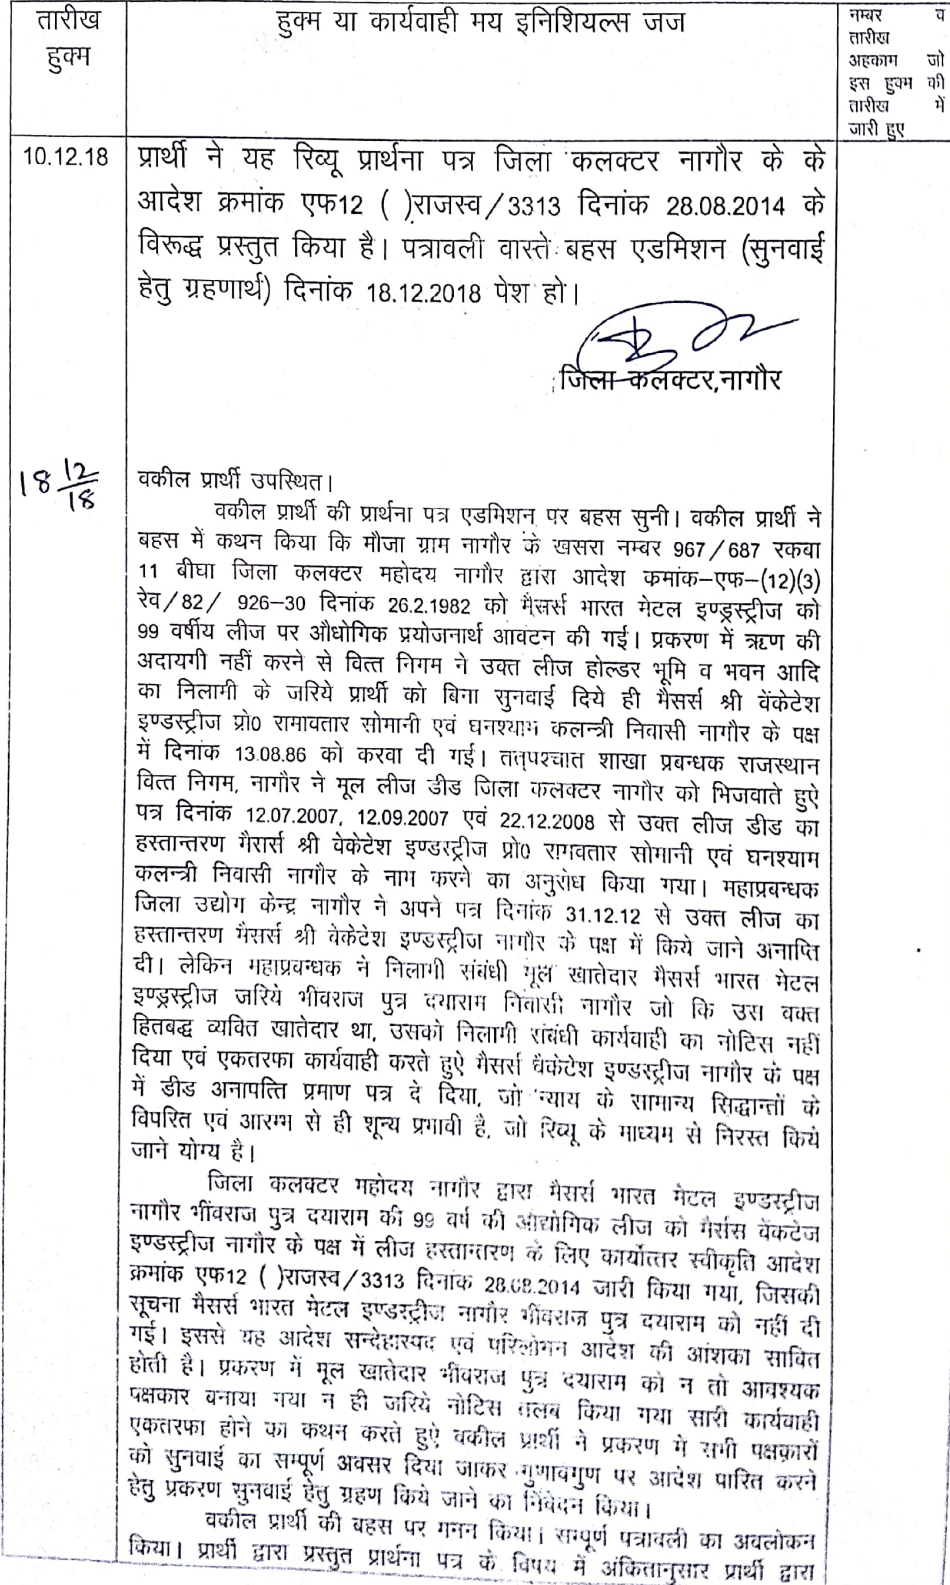 तारीख
हुक्म
हुक्म या कार्यवाही मय इनिशियल्स जज
नम्बर व
तारीख
अहकाम जो
इस हुक्म की
तारीख में
जारी हुए
10.12.18
प्रार्थी ने यह रिव्यू प्रार्थना पत्र जिला कलक्टर नागौर के के
आदेश क्रमांक एफ12 ( )राजस्व/3313 दिनांक 28.08.2014 के
विरूद्ध प्रस्तुत किया है। पत्रावली वास्ते बहस एडमिशन (सुनवाई
हेतु ग्रहणार्थ) दिनांक 18.12.2018 पेश हो।
जिला कलक्टर,नागौर
18 12/18
वकील प्रार्थी उपस्थित।
वकील प्रार्थी की प्रार्थना पत्र एडमिशन पर बहस सुनी। वकील प्रार्थी ने
बहस में कथन किया कि मौजा ग्राम नागौर के खसरा नम्बर 967/687 रकबा
11 बीघा जिला कलक्टर महोदय नागौर द्वारा आदेश कमांक–एफ–(12)(3)
रेव/82/ 926–30 दिनांक 26.2.1982 को मैसर्स भारत मेटल इण्ड्रस्ट्रीज को
99 वर्षीय लीज पर औधोगिक प्रयोजनार्थ आवटन की गई। प्रकरण में ऋण की
अदायगी नहीं करने से वित्त निगम ने उक्त लीज होल्डर भूमि व भवन आदि
का निलागी के जरिये प्रार्थी को बिगा सुनवाई दिये ही मैसर्स श्री वेंकेटेश
इण्डस्ट्रीज प्रो0 रामावतार सोमानी एवं घनश्याम कलन्त्री निवासी नागौर के पक्ष
में दिनांक 13.08.86 को करवा दी गई। तत्पश्चात शाखा प्रबन्धक राजस्थान
वित्त निगम, नागौर ने मूल लीज डीड जिला कलक्टर नागौर को भिजवाते हुऐ
पत्र दिनांक 12.07.2007, 12.09.2007 एवं 22.12.2008 से उक्त लीज डीड का
हस्तान्तरण मैरार्स श्री वेकेटेश इण्डस्ट्रीज प्रो0 रागवतार सोमानी एवं घनश्याम
कलन्त्री निवासी नागौर के नाभ करने का अनुरोध किया गया। महाप्रबन्धक
जिला उद्योग केन्द्र नागौर ने अपने पत्र दिनांक 31.12.12 से उक्त लीज का
हस्तान्तरण मैसर्स श्री वेकेटेश इण्डस्ट्रीज नागौर के पक्ष में किये जाने अनाप्ति
दी। लेकिन महाप्रबन्धक ने निलागी संबंधी मूल खातेदार मैसर्स भारत मेटल
इण्ड्रस्ट्रीज जरिये भींवराज पुत्र दयाराम निवासी नागौर जो कि उस वक्त
हितबद्ध व्यवित खातेदार था, उसको निलागी संबंधी कार्यवाही का नोटिस नहीं
दिया एवं एकतरफा कार्यवाही करते हुऐ मैसर्स वैकेटेश इण्डस्ट्रीज नागौर के पक्ष
में डीड अनापत्ति प्रमाण पत्र दे दिया, जो न्याय के सामान्य सिद्धान्तों के
विपरित एवं आरम्भ से ही शून्य प्रभावी है, जो रिव्यू के माध्यम से निरस्त किये
जाने योग्य है।
जिला कलक्टर महोदय नागौर द्वारा मैसर्स भारत मेटल इण्डस्ट्रीज
नागौर भींवराज पुत्र दयाराम की 99 वर्ष की औद्योगिक लीज को मैर्सस वेंकटेज
इण्डस्ट्रीज नागौर के पक्ष में लीज हस्तान्तरण के लिए कार्योत्तर स्वीकृति आदेश
क्रमांक एफ12 ( )राजस्व/3313 दिनांक 28.08.2014 जारी किया गया, जिसकी
सूचना मैसर्स भारत मेटल इण्डस्ट्रीज नागौर भींवराज पुत्र दयाराम को नहीं दी
गई। इससे यह आदेश सन्देहास्पद एवं परिलोगन आदेश की आंशका साबित
होती है। प्रकरण में मूल खातेदार भींवराज पुत्र दयाराम को न तो आवश्यक
पक्षकार बनाया गया न ही जरिये नोटिस तलब किया गया सारी कार्यवाही
एकतरफा होने का कथन करते हुऐ वकील प्रार्थी ने प्रकरण में सभी पक्षकारों
को सुनवाई का सम्पूर्ण अवसर दिया जाकर गुणावगुण पर आदेश पारित करने
हेतु प्रकरण सुनवाई हेतु ग्रहण किये जाने का निवेदन किया।
वकील प्रार्थी की बहस पर गनन किया। सम्पूर्ण पत्रावली का अवलोकन
किया। प्रार्थी द्वारा प्रस्तुत प्रार्थना पत्र के विषय में अंकितानुसार प्रार्थी द्वारा